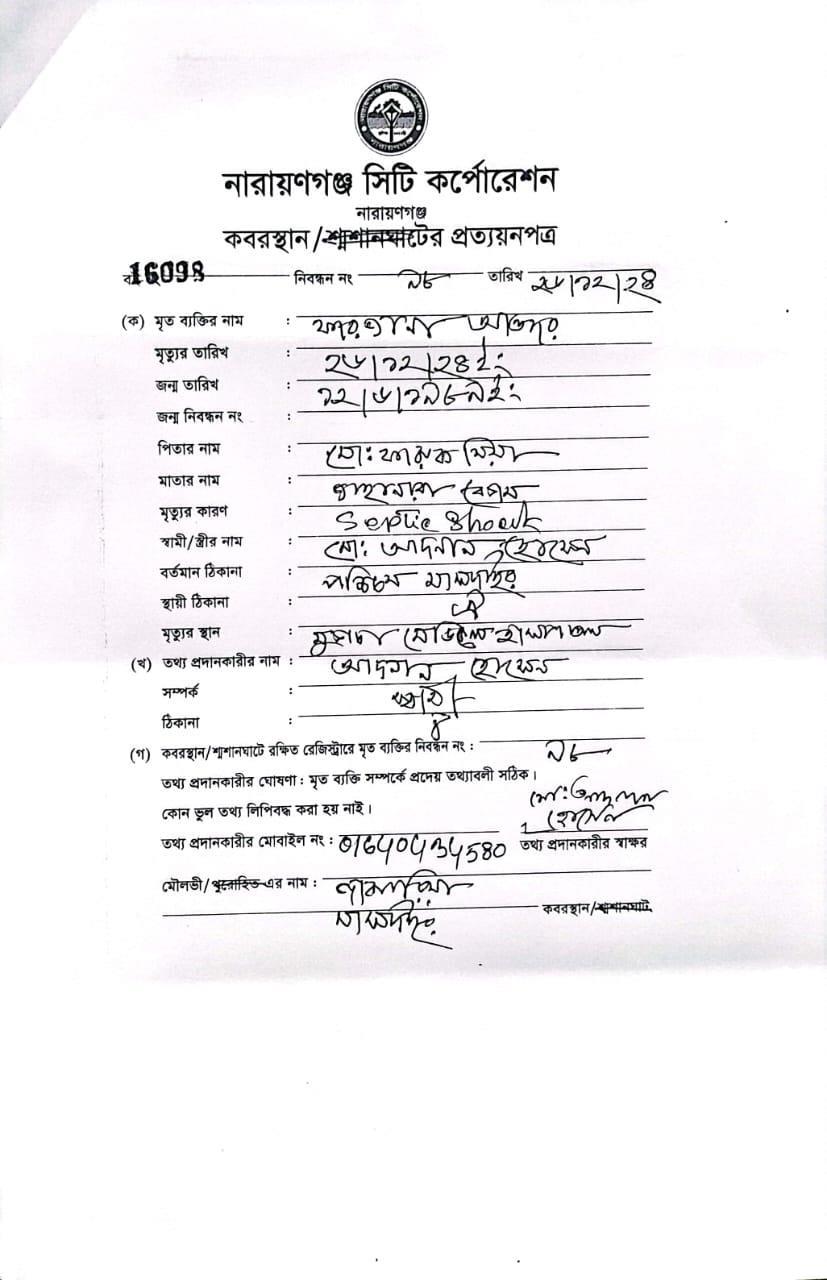 নারায়ণগঞ্জ সিটি কর্পোরেশন
নারায়ণগঞ্জ
কবরস্থান/শ্মশানঘাটের প্রত্যয়নপত্র
16098 নিবন্ধন নং ৯৮ তারিখ ২৬/১২/২৪
(ক) মৃত ব্যক্তির নাম : ফারজানা আক্তার
মৃত্যুর তারিখ : ২৬/১২/২৪ইং
জন্ম তারিখ : ১২/৬/১৯৮৯ইং
জন্ম নিবন্ধন নং :
পিতার নাম : মো: ফারুক মিয়া
মাতার নাম : জাহানারা বেগম
মৃত্যুর কারণ : Septic Shock
স্বামী/স্ত্রীর নাম : মো: আদনান হোসেন
বর্তমান ঠিকানা : পশ্চিম মাসদাইর
স্থায়ী ঠিকানা : ঐ
মৃত্যুর স্থান : মেডিকেল হাসপাতাল
(খ) তথ্য প্রদানকারীর নাম : আদনান হোসেন
সম্পর্ক : স্বামী
ঠিকানা :
(গ) কবরস্থান/শ্মশানঘাটে রক্ষিত রেজিস্ট্রারে মৃত ব্যক্তির নিবন্ধন নং : ৯৮
তথ্য প্রদানকারীর ঘোষণা : মৃত ব্যক্তি সম্পর্কে প্রদেয় তথ্যাবলী সঠিক।
কোন ভুল তথ্য লিপিবদ্ধ করা হয় নাই।
মো: আদনান
হোসেন
তথ্য প্রদানকারীর মোবাইল নং : তথ্য প্রদানকারীর স্বাক্ষর
মৌলভী/পুরোহিত-এর নাম :
মাসদাইর কবরস্থান/শ্মশানঘাট